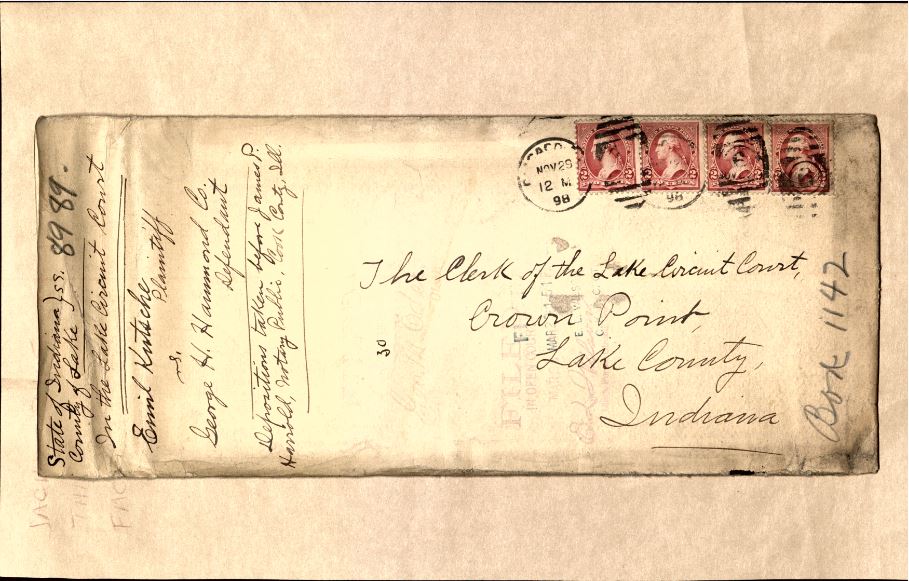 State of Indiana } ss. 8989.
County of Lake
In the Lake Circuit Court
Emil Kutsche
Plaintiff
vs.
George H. Hammond Co.
Defendant
Depositions taken before James P.
Harrold, Notary Public, Cook County, Ill.
30
NOV 29
12 M
98
98
The Clerk of the Lake Circuit Court,
Crown Point,
Lake County,
Indiana
Box 1142
FILED
IN OPEN COURT
MAR